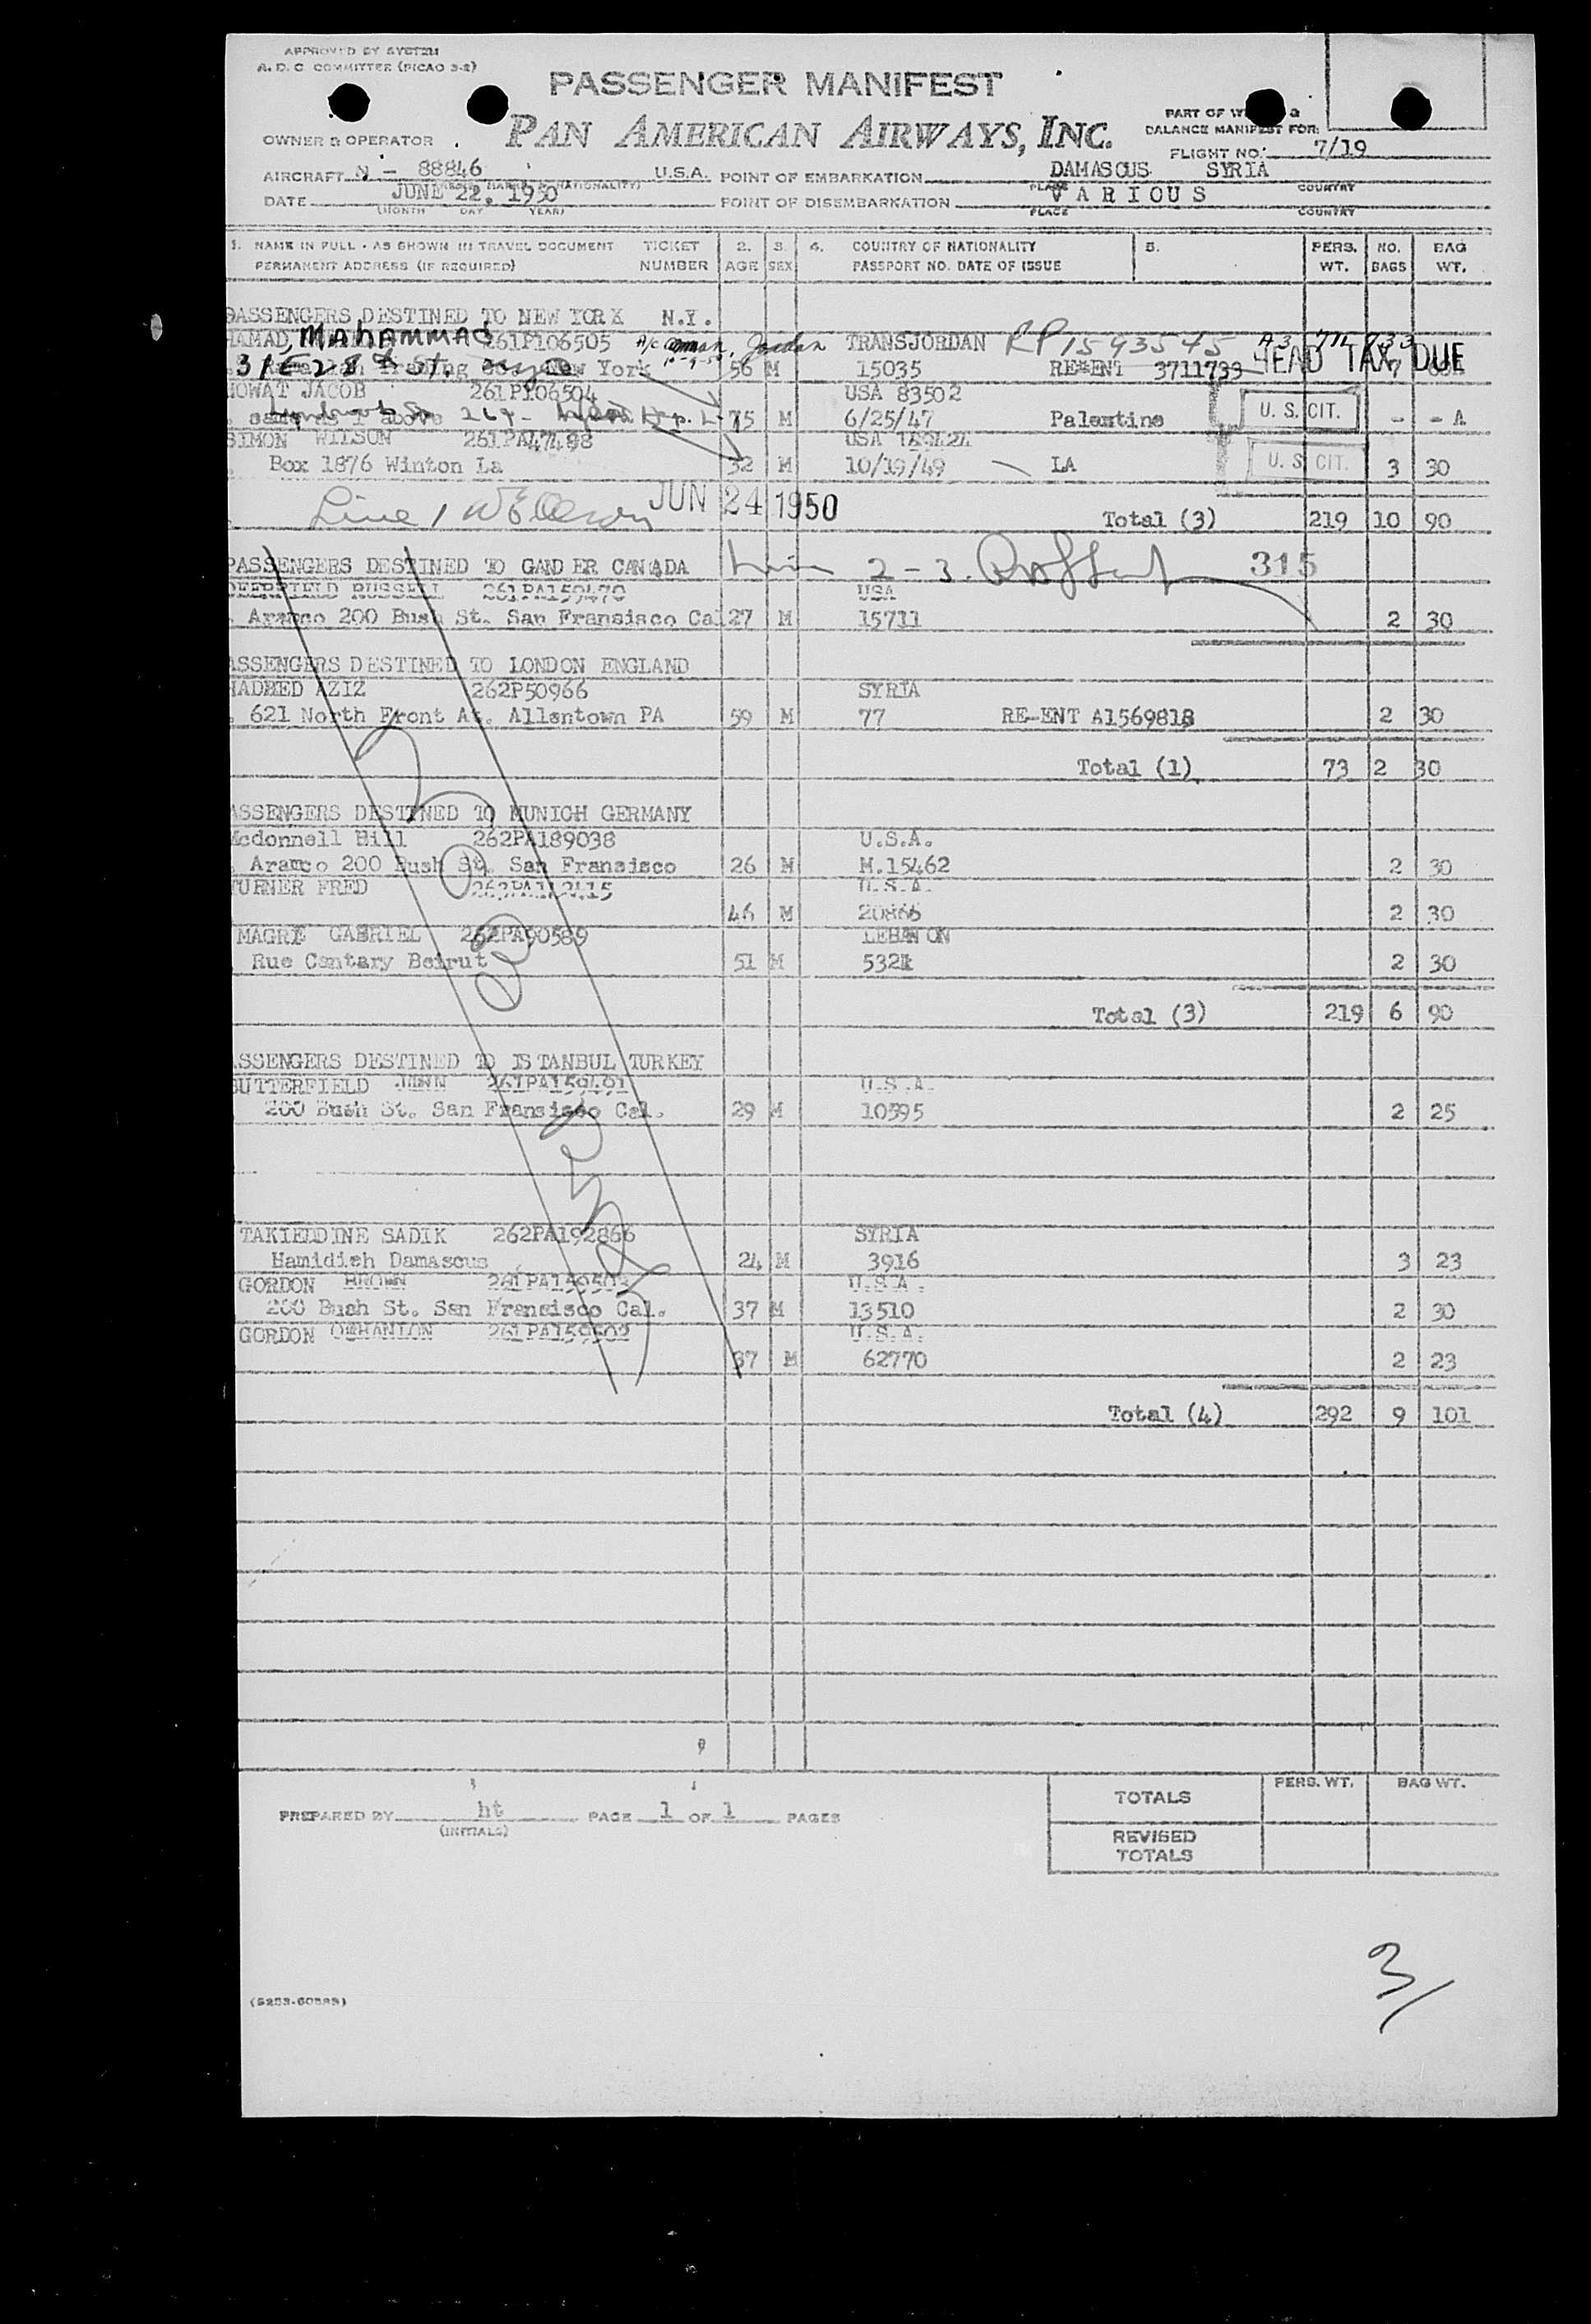 APPROVED BY SYSTEM
A. D. C. COMMITTEE (PICAO 3-2)
PASSENGER MANIFEST
OWNER & OPERATOR PAN AMERICAN AIRWAYS, INC.
PART OF &
BALANCE MANIFEST FOR:
FLIGHT NO. 7/19
AIRCRAFT N - 88846 U.S.A. POINT OF EMBARKATION DAMASCUS SYRIA
PLACE COUNTRY
DATE JUNE 22, 1950 POINT OF DISEMBARKATION VARIOUS
(MONTH DAY YEAR) PLACE COUNTRY
1. NAME IN FULL - AS SHOWN IN TRAVEL DOCUMENT TICKET 2. 3. 4. COUNTRY OF NATIONALITY 5. PERS. NO. BAG
PERMANENT ADDRESS (IF REQUIRED) NUMBER AGE SEX PASSPORT NO. DATE OF ISSUE WT. BAGS WT.
PASSENGERS DESTINED TO NEW YORK N.Y.
HAMAD, Mohammad 261P106505 Jordan TRANSJORDAN RP 1593545
31 E 28 St. New York 56 M 15035 RE-ENT 3711733 HEAD TAX DUE
HOWAT JACOB 261P106504 USA 83502
same as above 75 M 6/25/47 Palestine U. S. CIT. - - A
SIMON WILSON 261PA47498 USA
Box 1876 Winton La 32 M 10/19/49 LA U. S. CIT. 3 30
Line 1 JUN 24 1950 Total (3) 219 10 90
PASSENGERS DESTINED TO GANDER CANADA 2 - 3. 315
DEERFIELD RUSSELL 261PA159470 USA
Aramco 200 Bush St. San Fransisco Cal 27 M 15711 2 30
ASSENGERS DESTINED TO LONDON ENGLAND
HADEED AZIZ 262P50966 SYRIA
621 North Front At. Allentown PA 59 M 77 RE-ENT A1569818 2 30
Total (1) 73 2 30
ASSENGERS DESTINED TO MUNICH GERMANY
Mcdonnell Bill 262PA189038 U.S.A.
Aramco 200 Bush St. San Fransisco 26 M M.15462 2 30
TURNER FRED U.S.A.
46 M 20866 2 30
MAGRE GABRIEL 262PA90589 LEBANON
Rue Contary Beirut 51 M 5321 2 30
Total (3) 219 6 90
ASSENGERS DESTINED TO ISTANBUL TURKEY
BUTTERFIELD JOHN 261PA159491 U.S.A.
200 Bush St. San Fransisco Cal. 29 M 10595 2 25
TAKIEDDINE SADIK 262PA192866 SYRIA
Hamidieh Damascus 24 M 3916 3 23
GORDON BROWN 261PA159503 U.S.A.
200 Bush St. San Fransisco Cal. 37 M 13510 2 30
GORDON OEHANION 261PA159502 U.S.A.
37 M 62770 2 23
Total (4) 292 9 101
PERS. WT. BAG WT.
TOTALS
PREPARED BY ht PAGE 1 OF 1 PAGES
(INITIALS)
REVISED
TOTALS
3/